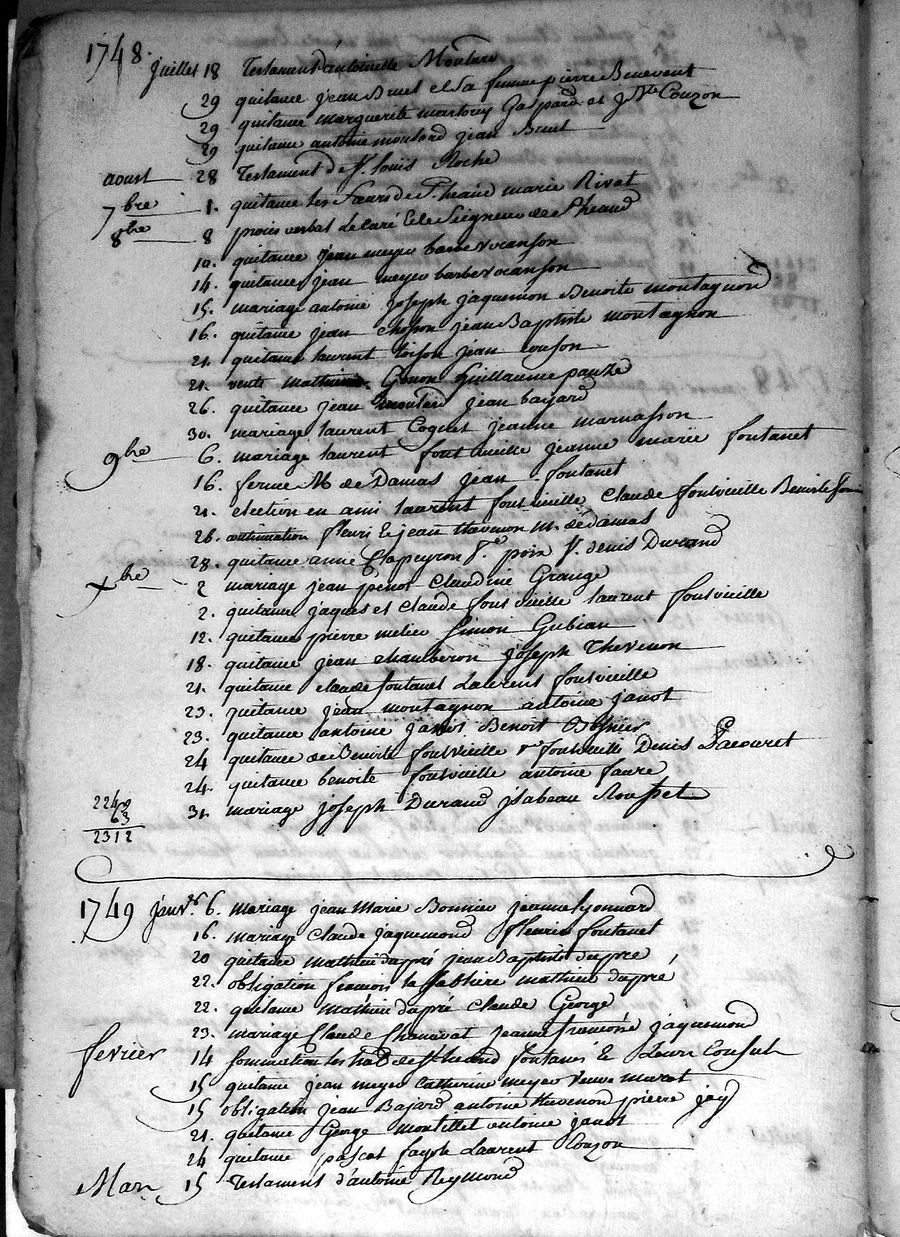 1748. juillet 18 Testament d'antoinette Moutard
29 quitance jean Bruet et sa femme pierre Benevent
29 quitance marguerite martorey Gaspard et Couzon
29 quitance antoine moutard jean Bruet
aoust 28 Testament de Sr. louis Roche
7bre 1. quitance les Sœurs de St. heand marie Rivat
8bre 8 proces verbal Le Curé & le Seigneur de St heand
10. quitance jean meyer barbe vocanson
14. quitance jean meyer barbe vocanson
15. mariage antoine joseph jaquemon Benoite montagnon
16. quitance jean chosson jean Baptiste montagnon
21. quitance laurent loison jean couson
21. vente mathieu Gonon Guillaume pauze
26. quitance jean moutard jean bayard
30. mariage laurent Coquet jeanne marnasson
9bre 6. mariage laurent fontvieille jeanne marie fontanet
16. ferme M. de Damas jean fontanet
21. election en ami laurent fontvieille Claude fontvieille Benoite
26. fleuri & jean thevenon M. de damas
28. quitance anne Clapeyron Ve. poin Sr. denis Durand
Xbre 2 mariage jean penot Claudine Grange
2. quitance jaques et Claude fontvieille laurent fontvieille
12. quitance pierre melier Simon Gubian
18. quitance jean chamberon joseph Thevenon
21. quitance claude fontanet Laurent fontvieille
23. quitance jean montagnon antoine janot
23. quitance antoine Benoit
24 quitance de Benoite fontvieille fontvieille Denis Pacouret
24. quitance benoite fontvieille antoine faure
31. mariage joseph Durand jsabeau Rousset
2248
63
2312
1749 janvr. 6. mariage jean Marie Bonnier jeanne lyonnard
16. mariage Claude jaquemond fleurie fontanet
20 quitance mathieu dupré jean Baptiste dupre
22. obligation francois la Sabliere mathieu dupré
22. quitance mathieu dupré Claude George
23. mariage Claude Chanavat jeanne francoise jaquemond
fevrier 14 Sommation les hab. de St heand fontanés & Leurs Consuls
15 quitance jean meyer catherine meyer veuve murat
15 obligation jean Bajard antoine thevenon pierre jay
21. quitance George montillet antoine janot
24 quitance pascal fayole Laurent Couzon
Mars 15 Testament d'antoine Reymond